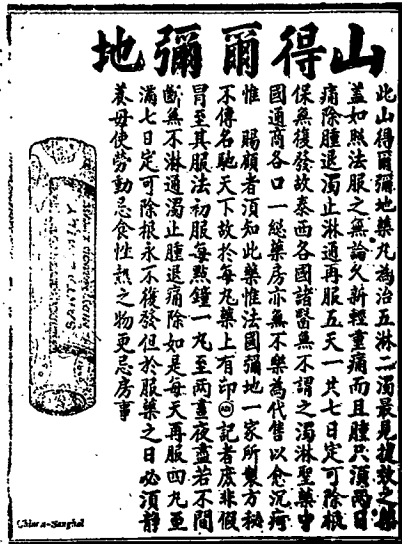 山得爾彌地
此山得爾彌地藥丸為治五淋二濁最見捷效之藥
蓋如照法服之無論久新輕重痛而且腫只須兩日
痛除腫退濁止淋通再服五天一共七日定可除根
保無復發故泰西各國諸醫無不謂之濁淋聖藥中
國通商各口一綜藥房亦無不樂為代售以愈沉疴
惟 賜顧者須知此藥惟法國彌地一家所製方秘
不傳名馳天下故於每丸藥上有印記者庶非假
冒至其服法初服每點鐘一丸至兩晝夜盡若不間
斷無不淋通濁止腫退痛除如是每天再服四丸至
滿七日定可除根永不復發但於服藥之日必須靜
養毋使勞動忌食性熱之物更忌房事
SANTAL MIDY